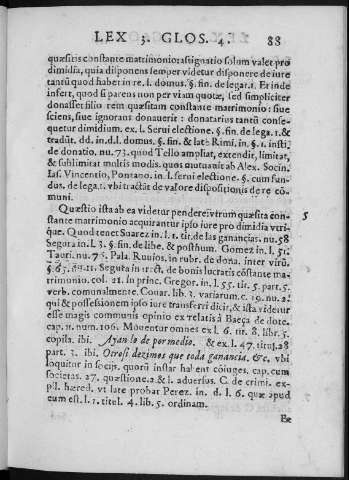 LEX 3. GLOS. 4. 88
quæsitis constante matrimonio: assignatio solum valet pro
dimidia, quia disponens semper videtur disponere de iure
tantũ quod habet in re. l. domus. §. fin. de legat. 1. Et inde
infert, quod si parens non per viam quotæ, sed simpliciter
donasset filio rem quæsitam constante matrimonio: siue
sciens, siue ignorans donauerit: donatarius tantũ conse-
quetur dimidium. ex. l. Serui electione. §. fin. de lega. 1. &
tradũt. dd. in. d. l. domus. §. fin. & latè Rimi. in. §. 1. insti.
de donatio. nu. 73. quod Tello ampliat, extendit, limitat,
& sublimitat multis modis. quos mutuauit ab Alex. Socin.
Ias. Vincentio, Pontano. in. l. serui electione. §. cum fun-
dus. de lega. 1. vbi tractãt de valore dispositionis de re cõ-
muni.
Quæstio ista ab ea videtur pendere: vtrum quæsita con- 5
stante matrimonio acquirantur ipso iure pro dimidia vtri-
que. Quod tenet Suarez in. l. 1. tit. de las ganancias. nu. 58
Segura in. l. 3. §. fin. de libe. & posthum. Gomez in. l. 51.
Tauri. nu. 76. Pala. Ruuios. in rubr. de dona. inter virũ.
§. 65. nu. 11. Segura in tract. de bonis lucratis cõstante ma-
trimonio. col. 21. in princ. Gregor. in. l. 55. tit. 5. part. 5.
verb. comunalmente. Couar. lib. 3. variarum. c. 19. nu. 2.
qui & possessionem ipso iure transferri dicit, & ista videtur
esse magis communis opinio ex relatis à Baeça de dote.
cap. 11. num. 106. Mouentur omnes ex l. 6. tit. 8. libr. 5.
copila. ibi. Ayan lo de por medio. & ex l. 47. titul. 28
part. 3. ibi. Otrosi dezimos que toda ganancia. &c, vbi
loquitur in socijs. quorũ instar habent cõiuges. cap. cum
societas. 27. quæstione. 2. & l. aduersus. C. de crimi. ex-
pil. hæred. vt late probat Perez. in. d. l. 6. quæ apud
eum est. l. 1. titul. 4. lib. 5. ordinam.